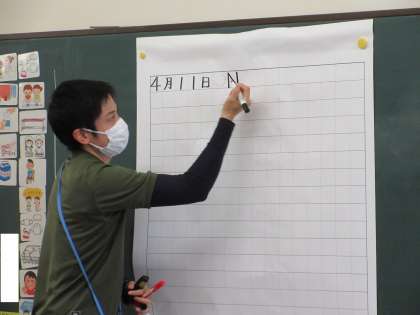 4月11日 N